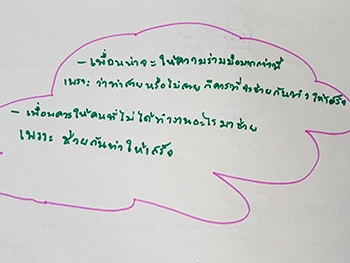 - เพื่อนน่าจะให้ความร่วมมือมากกว่านี้
เพราะ ว่าทำสายหรือไม่สาย ก็ควรที่จะช่วยกันทำ ให้เสร็จ
- เพื่อนควรให้คนที่ไม่ได้ทำงานอะไรมาช่วย
เพราะ ช่วยกันทำให้เสร็จ